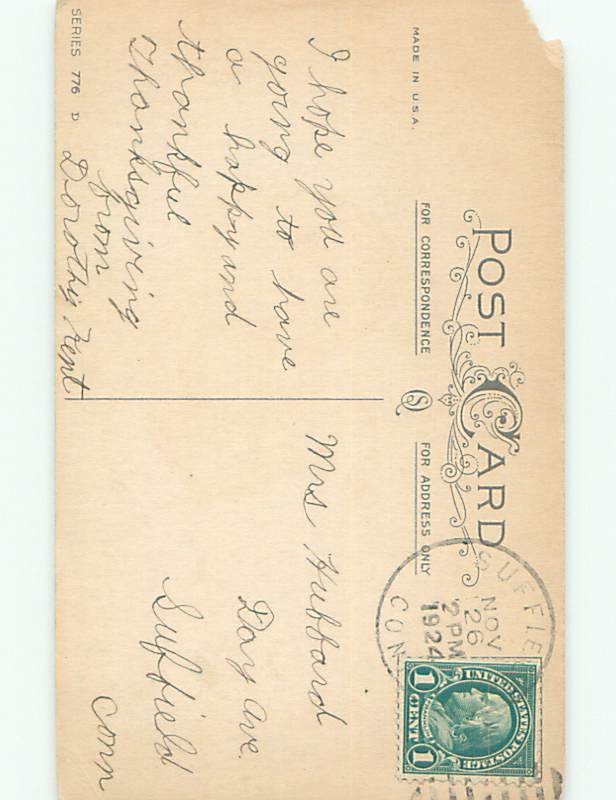 POST CARD
MADE IN U.S.A.
FOR CORRESPONDENCE
FOR ADDRESS ONLY
I hope you are
going to have
a happy and
thankful
Thanksgiving
from
Dorothy Kent
SERIES 776 D
Mrs Hubbard
Day Ave.
Suffield
Conn
SUFFIE
NOV
26
2 PM
1924
CON
UNITED STATES POSTAGE
1 CENT 1